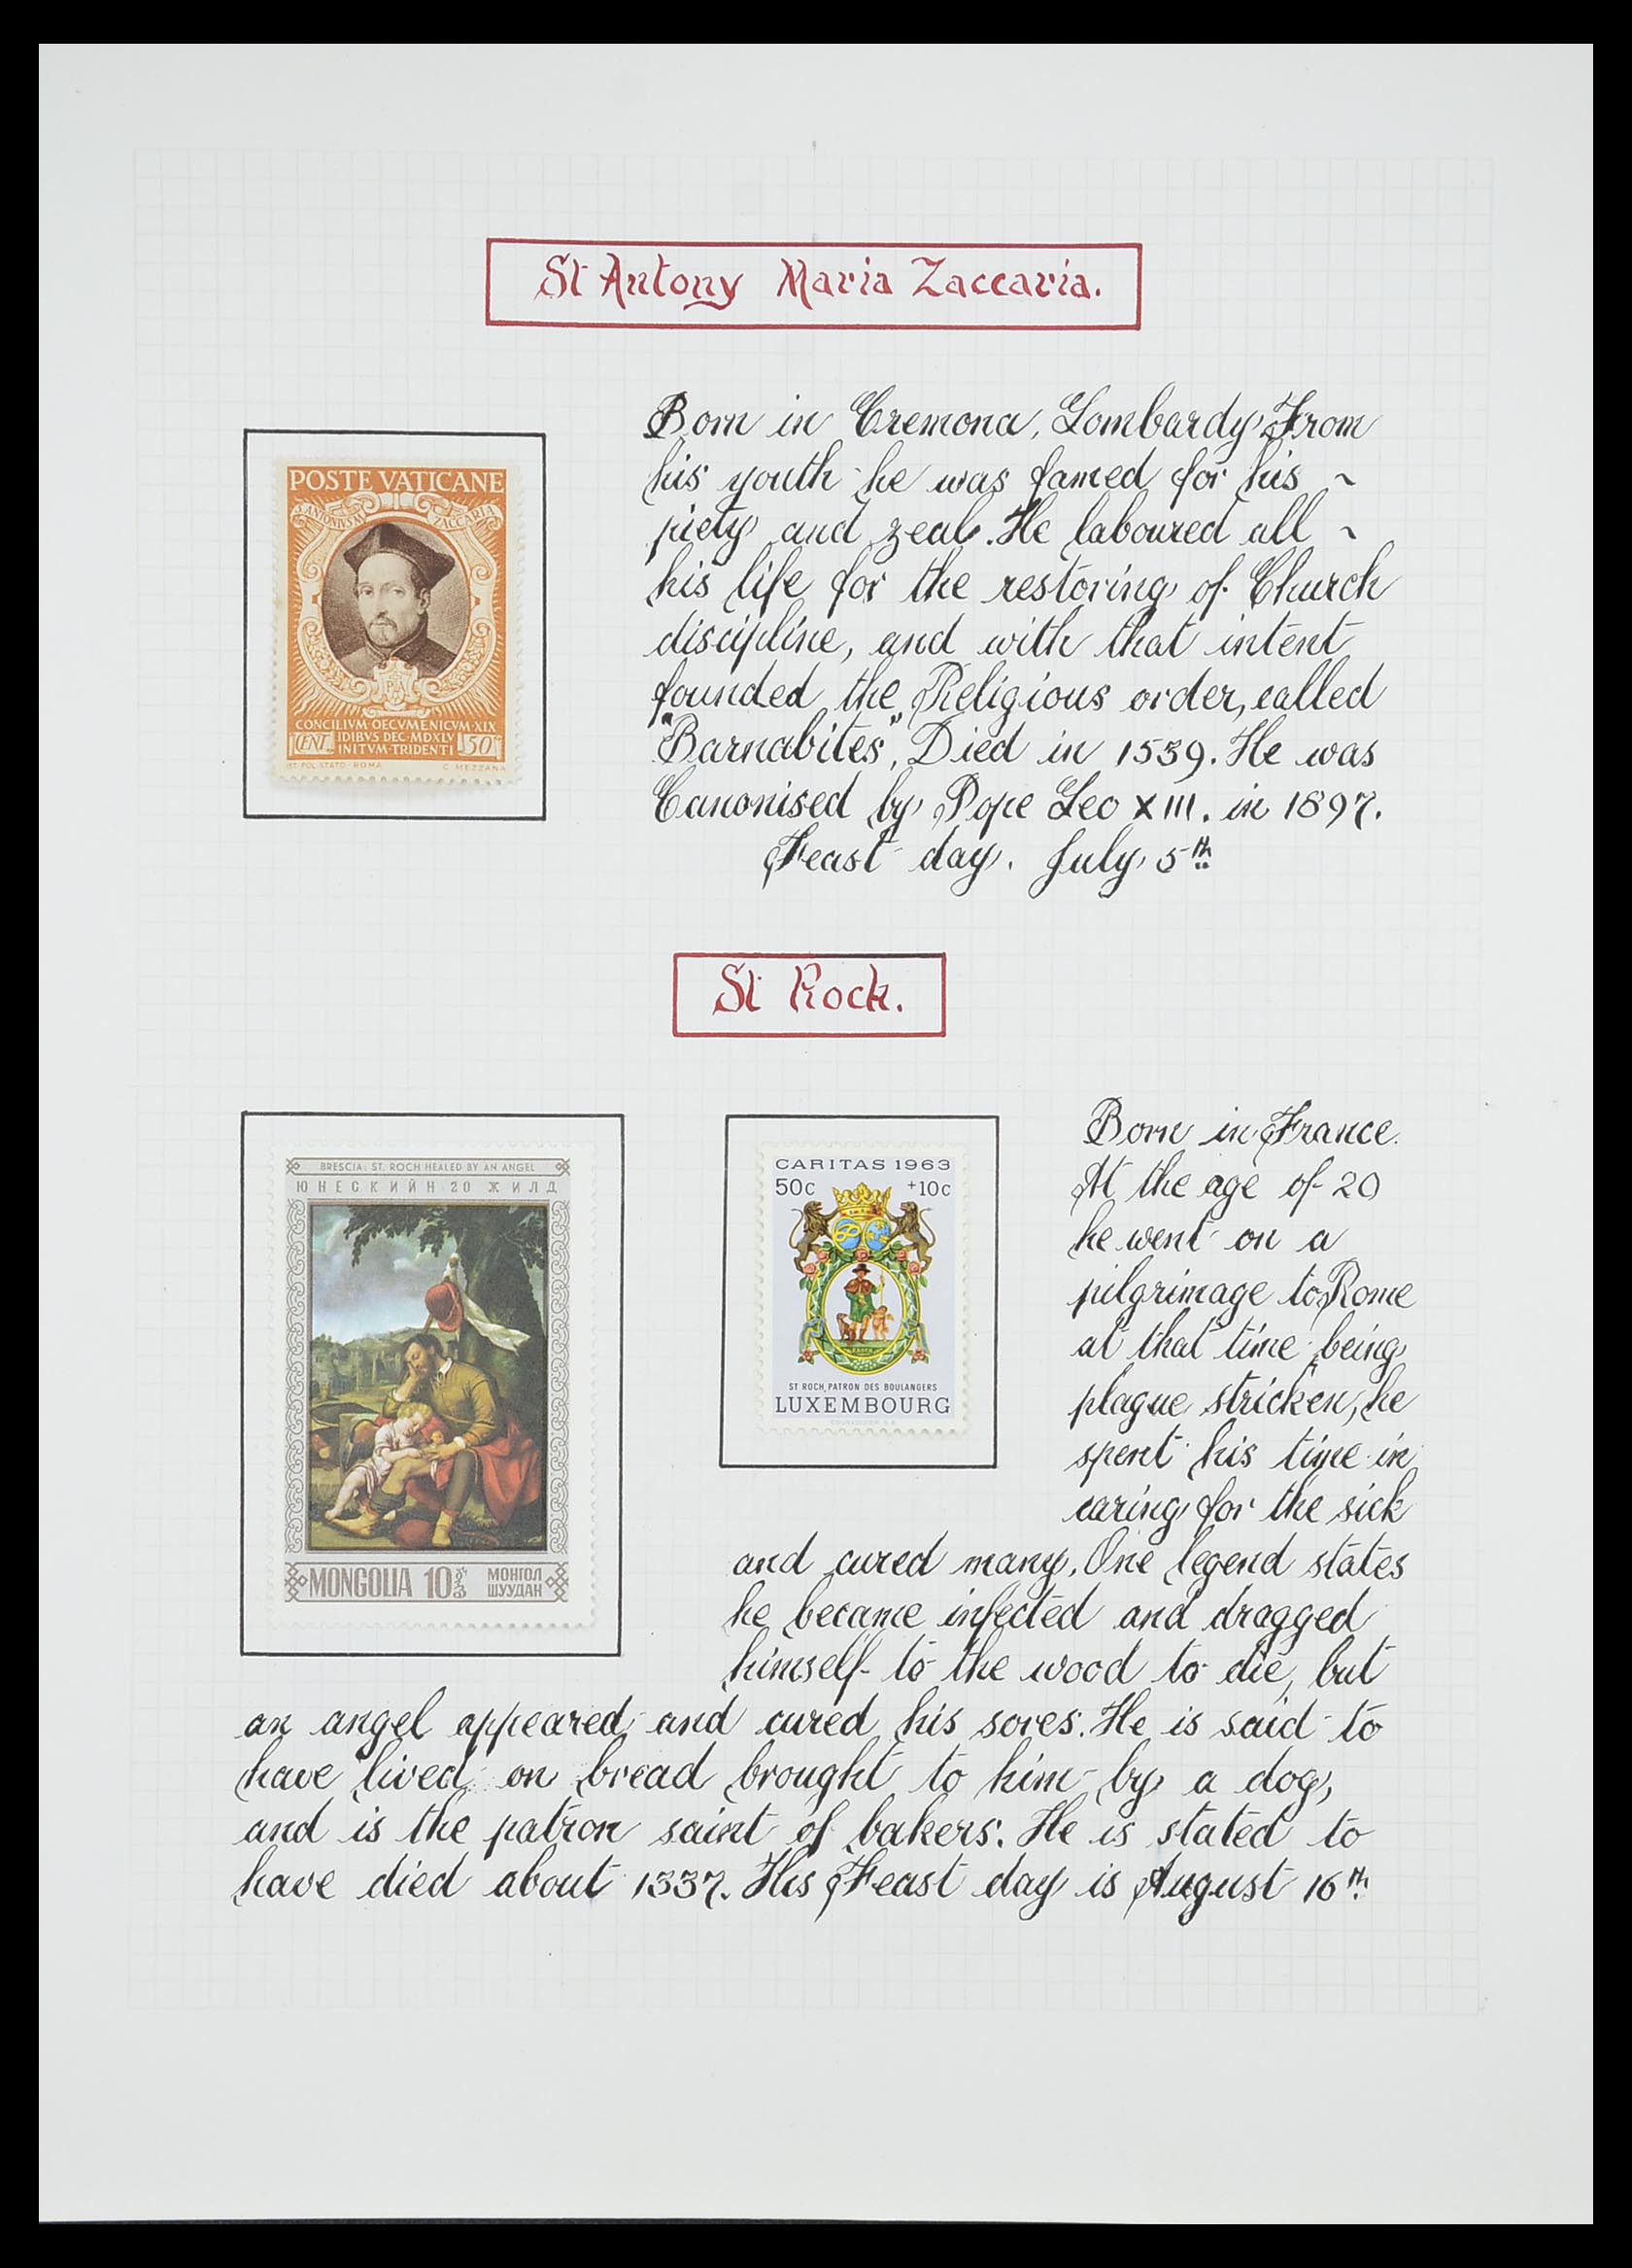 St Antony Maria Zaccaria.
POSTE VATICANE
S. ANTONIVS M. ZACCARIA
CONCILIVM·OECVMENICVM·XIX
IDIBVS DEC·MDXLV
INITVM·TRIDENTI
CENT. 50
IST. POL. STATO · ROMA C. MEZZANA
Born in Cremona, Lombardy. From
his youth he was famed for his ~
piety and zeal. He laboured all ~
his life for the restoring of Church
discipline, and with that intent
founded the Religious order, called
"Barnabites", Died in 1539. He was
Canonised by Pope Leo XIII. in 1897.
Feast day. July 5th
St Rock.
BRESCIA: ST. ROCH HEALED BY AN ANGEL
ЮНЕСКИЙН 20 ЖИЛД
MONGOLIA 10 МОНГОЛ
ШУУДАН
CARITAS 1963
50c +10c
ST ROCH, PATRON DES BOULANGERS
LUXEMBOURG
Born in France.
At the age of 20
he went on a
pilgrimage to Rome
at that time being
plague stricken, he
spent his time in
caring for the sick
and cured many. One legend states
he became infected and dragged
himself to the wood to die, but
an angel appeared and cured his sores. He is said to
have lived on bread brought to him by a dog,
and is the patron saint of bakers. He is stated to
have died about 1337. His Feast day is August 16th